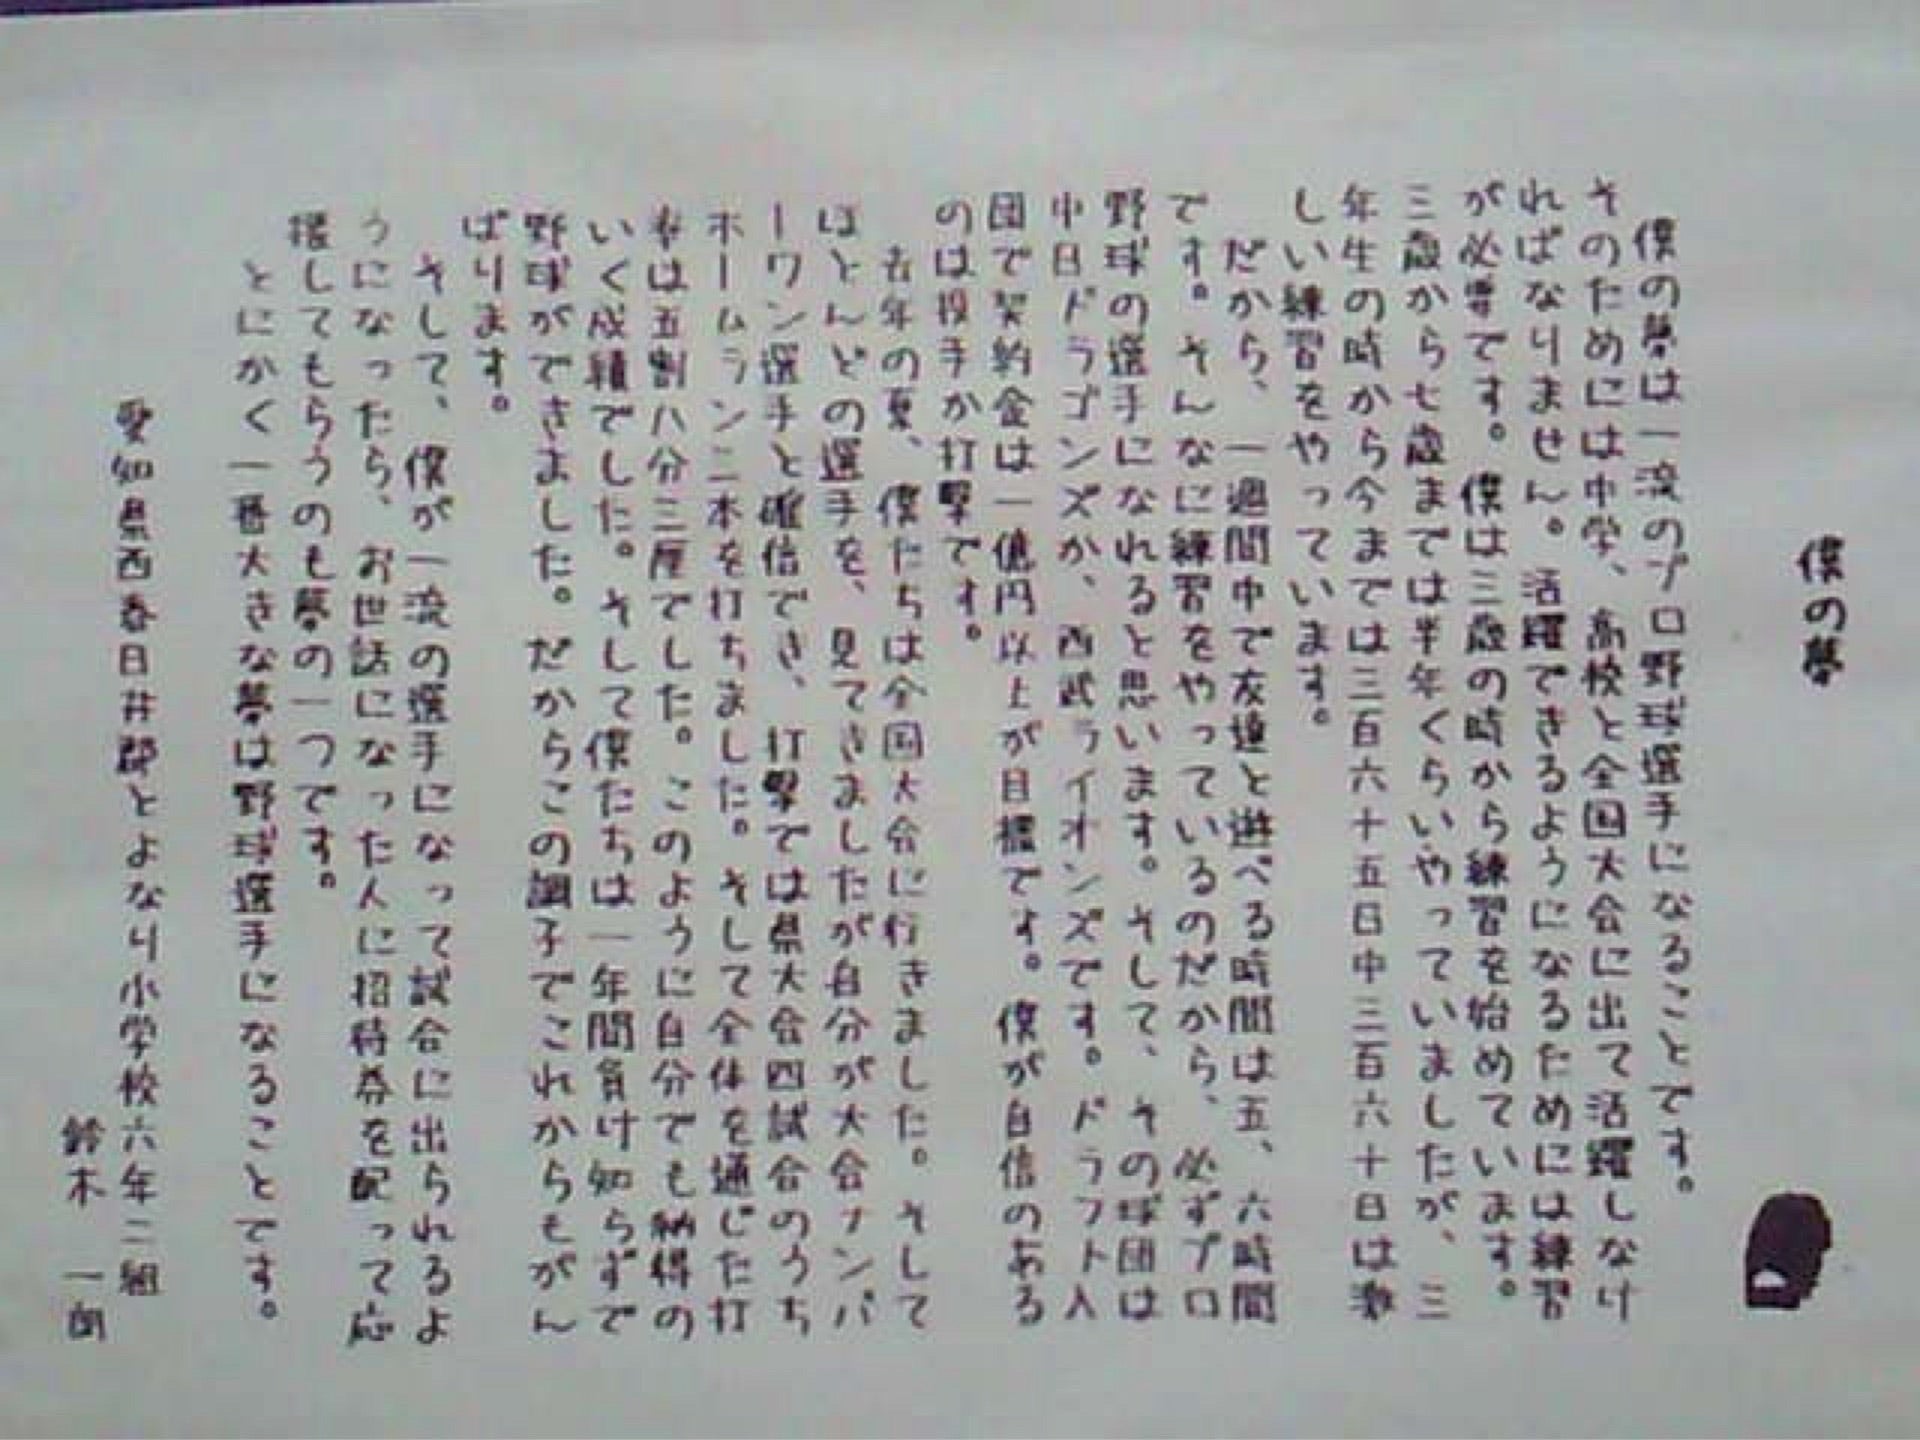 僕の夢
僕の夢は一流のプロ野球選手になることです。
そのためには中学、高校と全国大会に出て活躍しなけ
ればなりません。活躍できるようになるためには練習
が必要です。僕は三歳の時から練習を始めています。
三歳から七歳までは半年くらいやっていましたが、三
年生の時から今までは三百六十五日中三百六十日は激
しい練習をやっています。
だから、一週間中で友達と遊べる時間は五、六時間
です。そんなに練習をやっているのだから、必ずプロ
野球の選手になれると思います。そして、その球団は
中日ドラゴンズか、西武ライオンズです。ドラフト入
団で契約金は一億円以上が目標です。僕が自信のある
のは投手か打撃です。
去年の夏、僕たちは全国大会に行きました。そして
ほとんどの選手を、見てきましたが自分が大会ナンバ
ーワン選手と確信でき、打撃では県大会四試合のうち
ホームラン二本を打ちました。そして全体を通じた打
率は五割八分三厘でした。このように自分でも納得の
いく成績でした。そして僕たちは一年間負け知らずで
野球ができました。だからこの調子でこれからもがん
ばります。
そして、僕が一流の選手になって試合に出られるよ
うになったら、お世話になった人に招待券を配って応
援してもらうのも夢の一つです。
とにかく一番大きな夢は野球選手になることです。
愛知県西春日井郡とよなり小学校六年二組
鈴木 一朗